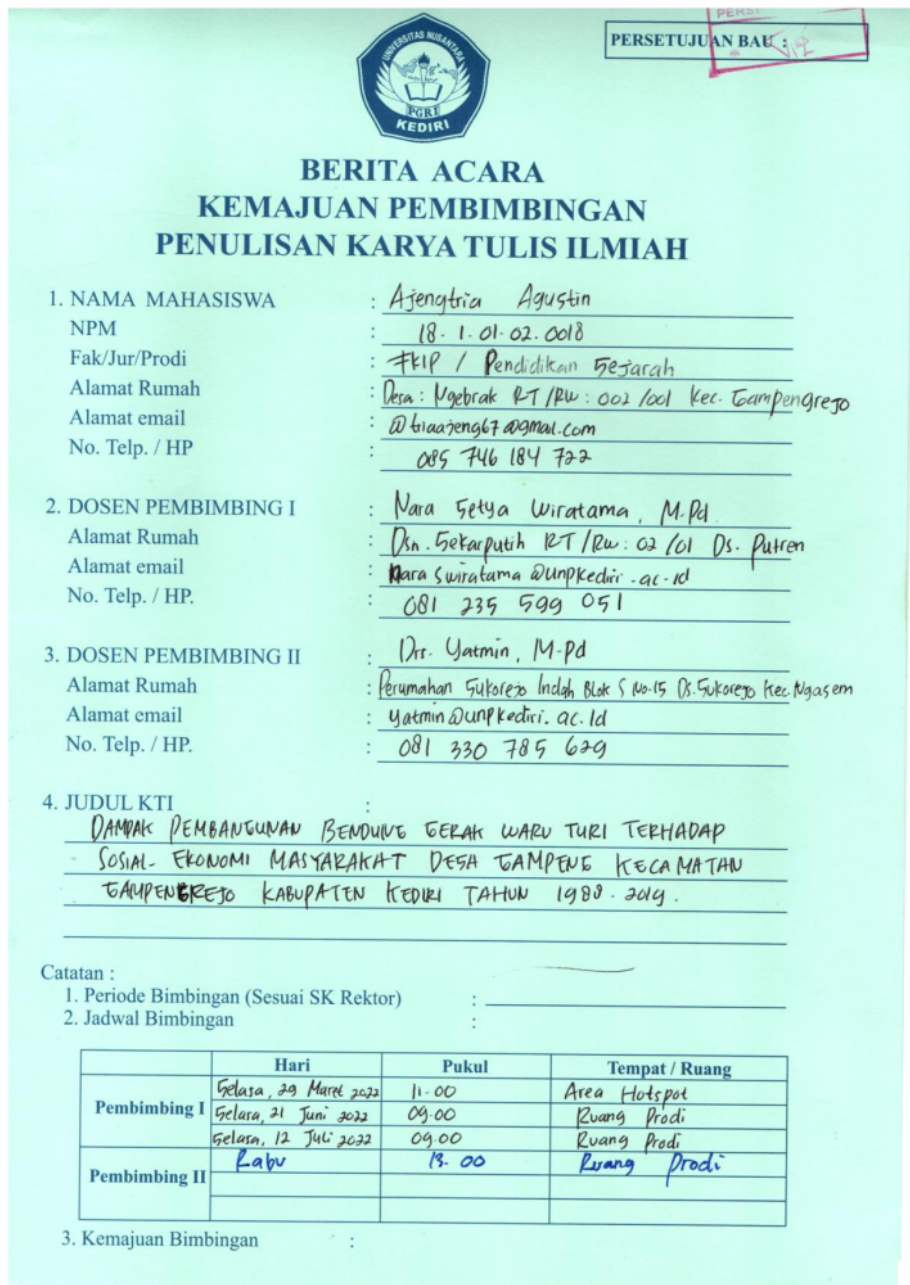 PERSETUJUAN BAU :
UNIVERSITAS NUSANTARA
PGRI
KEDIRI
BERITA ACARA
KEMAJUAN PEMBIMBINGAN
PENULISAN KARYA TULIS ILMIAH
1. NAMA MAHASISWA : Ajengtria Agustin
NPM : 18.1.01.02.0018
Fak/Jur/Prodi : FKIP / Pendidikan Sejarah
Alamat Rumah : Desa : Ngebrak RT/RW : 002/001 Kec. Gampengrejo
Alamat email : @triaajeng67@gmail.com
No. Telp. / HP : 085 746 184 722
2. DOSEN PEMBIMBING I : Nara Setya Wiratama, M.Pd
Alamat Rumah : Dsn. Sekarputih RT/Rw : 02/01 Ds. Putren
Alamat email : naraswiratama@unpkediri.ac.id
No. Telp. / HP. : 081 235 599 051
3. DOSEN PEMBIMBING II : Drs. Yatmin, M.Pd
Alamat Rumah : Perumahan Sukorejo Indah Blok S No.15 Ds.Sukorejo Kec.Ngasem
Alamat email : yatmin@unpkediri.ac.id
No. Telp. / HP. : 081 330 785 629
4. JUDUL KTI :
DAMPAK PEMBANGUNAN BENDUNG GERAK WARU TURI TERHADAP
SOSIAL-EKONOMI MASYARAKAT DESA GAMPENG KECAMATAN
GAMPENGREJO KABUPATEN KEDIRI TAHUN 1988-2019.
Catatan :
1. Periode Bimbingan (Sesuai SK Rektor) :
2. Jadwal Bimbingan :
Hari Pukul Tempat / Ruang
Pembimbing I
Selasa, 29 Maret 2022 11.00 Area Hotspot
Selasa, 21 Juni 2022 09.00 Ruang Prodi
Selasa, 12 Juli 2022 09.00 Ruang Prodi
Pembimbing II
Rabu 13.00 Ruang Prodi
3. Kemajuan Bimbingan :